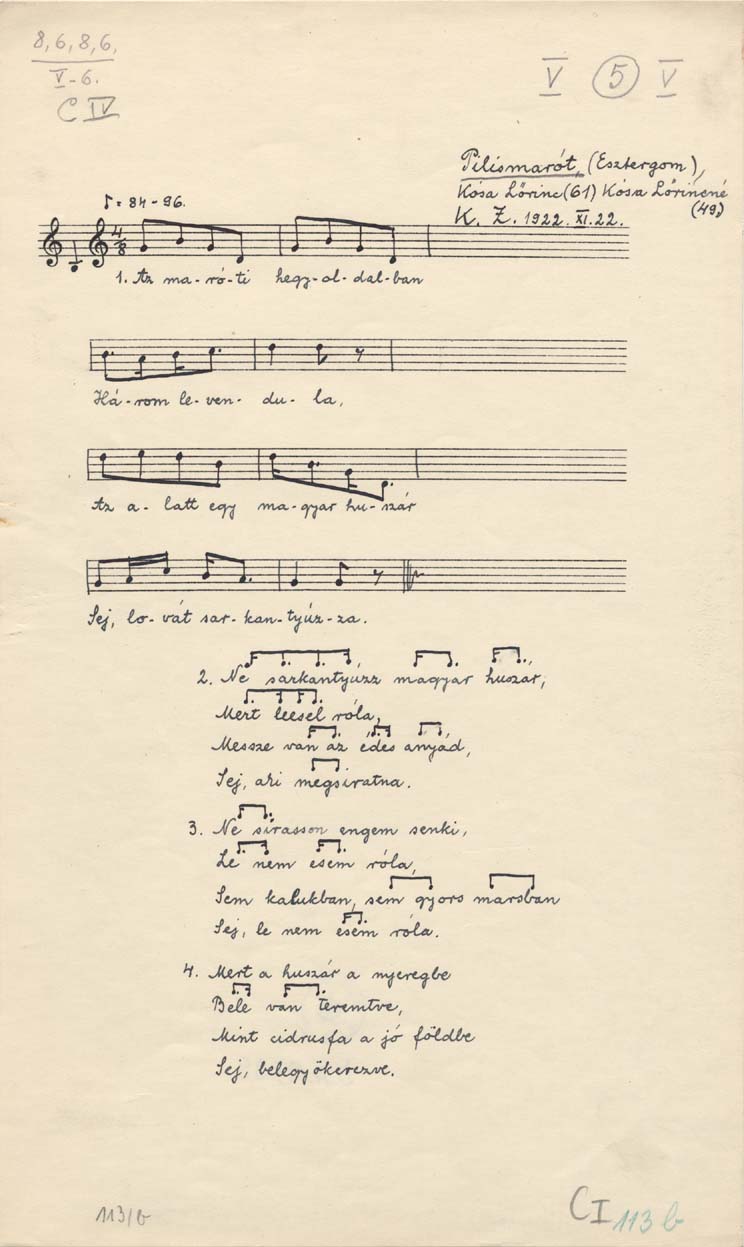 8, 6, 8, 6,
V-6.
C IV
V 5 V
Pilismarót, (Esztergom),
Kósa Lőrinc (61) Kósa Lőrincné
(49)
K. Z. 1922. XI. 22.
♪ = 84-96.
4/8
1. Az ma-ró-ti hegy-ol-dal-ban
Há-rom le-ven-du-la,
Az a-latt egy ma-gyar hu-szár
Sej, lo-vát sar-kan-tyúz-za.
2. Ne sarkantyúzz magyar huszár,
Mert leesel róla,
Messze van az édes anyád,
Sej, aki megsiratna.
3. Ne sirasson engem senki,
Le nem esem róla,
Sem kalukban, sem gyors marsban
Sej, le nem esem róla.
4. Mert a huszár a nyeregbe
Bele van teremtve,
Mint cidrusfa a jó földbe
Sej, belegyökerezve.
113/b
CI 113 b